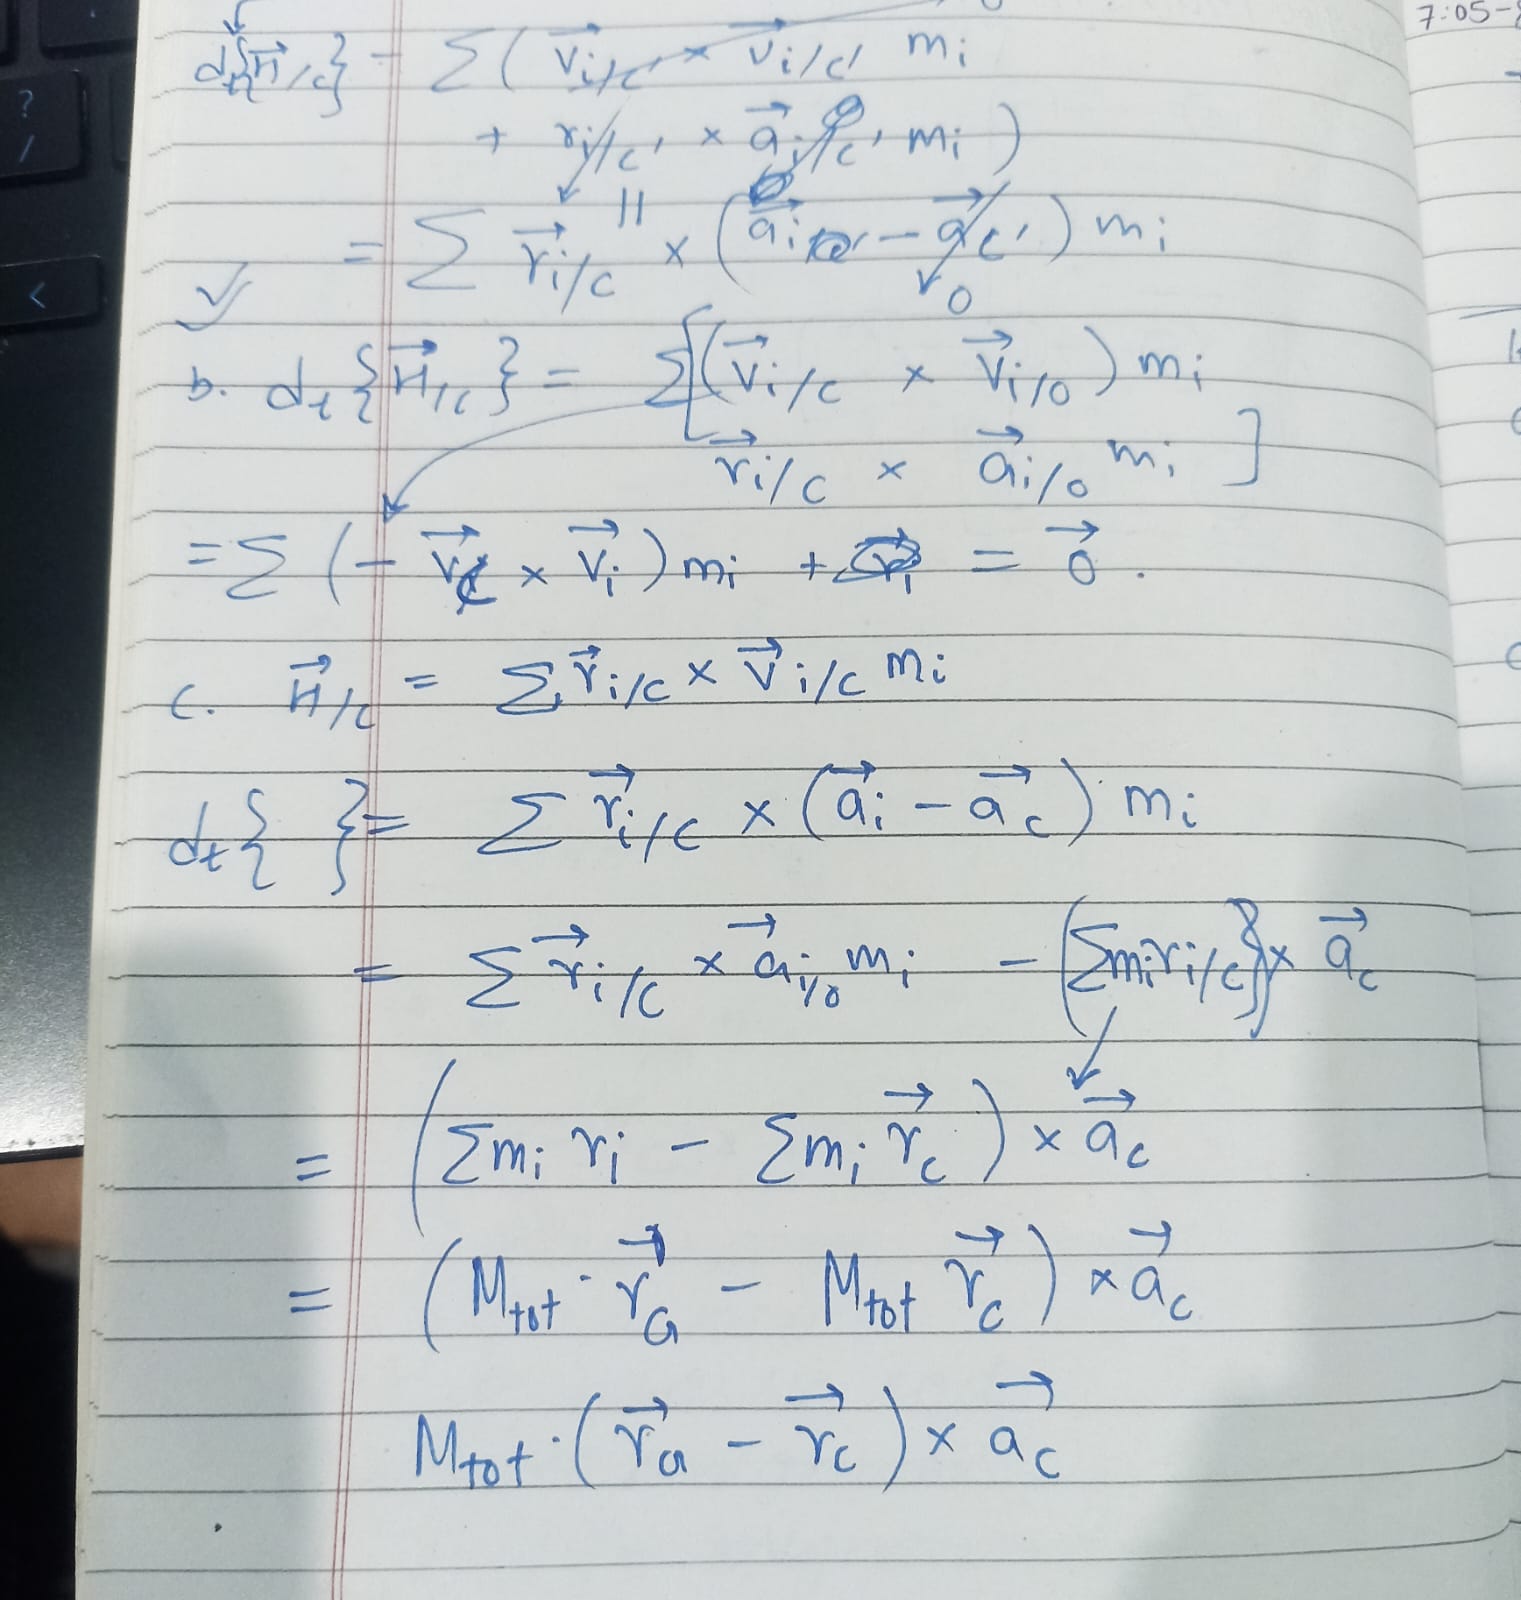 7:05-
d_t{H⃗_/C} = Σ( v⃗_i/C' × v⃗_i/C' m_i
+ r_i/C' × a⃗_i/C' m_i )
= Σ r⃗_i/C × ( a⃗_i − a⃗_C' ) m_i
0
b. d_t{H⃗_/C} = Σ[(v⃗_i/C × v⃗_i/0) m_i
r⃗_i/C × a⃗_i/0 m_i ]
= Σ (− v⃗_C × v⃗_i) m_i + = 0⃗.
c. H⃗_/C = Σ r⃗_i/C × v⃗_i/C m_i
d_t{ } = Σ r⃗_i/C × (a⃗_i − a⃗_C) m_i
= Σ r⃗_i/C × a⃗_i/0 m_i − (Σ m_i r_i/C) × a⃗_C
= (Σ m_i r_i − Σ m_i r⃗_C) × a⃗_C
= (M_tot · r⃗_G − M_tot r⃗_C) × a⃗_C
M_tot · (r⃗_G − r⃗_C) × a⃗_C
? /
<